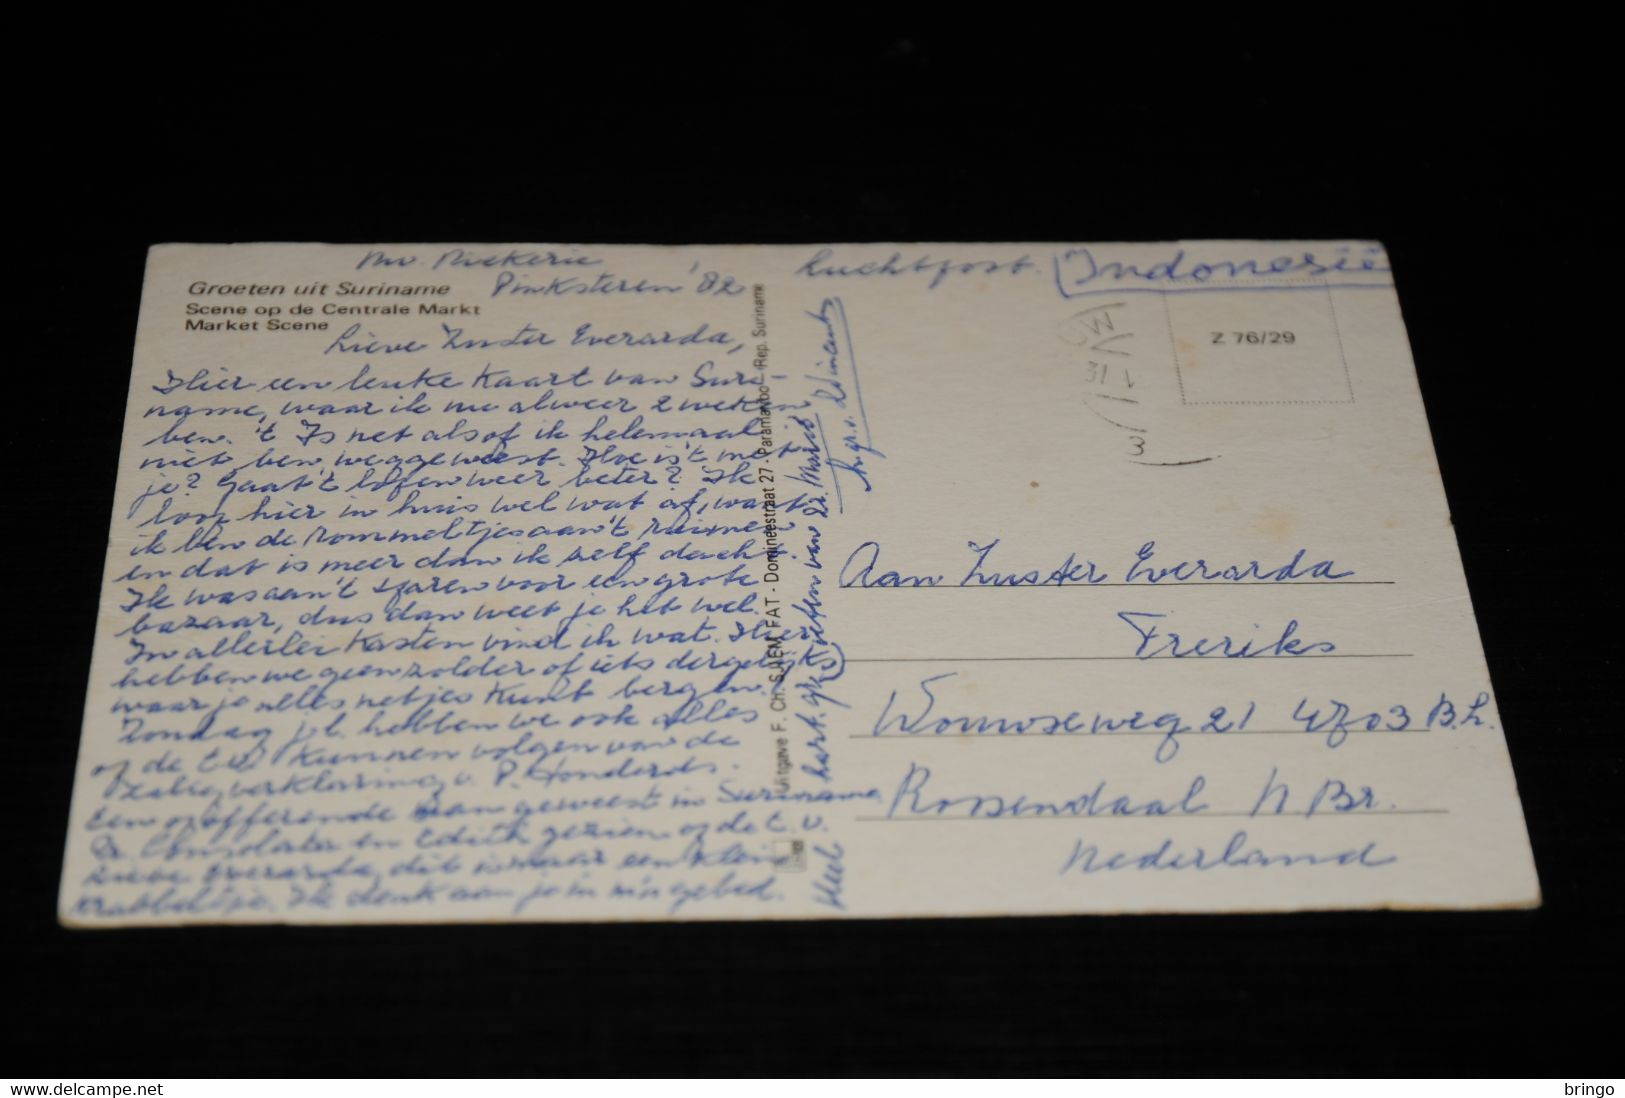 Nw. Nickerie
Pinksteren '82
Groeten uit Suriname
Scene op de Centrale Markt
Market Scene
Lieve Zuster Everarda,
Hier een leuke kaart van Suri-
name, waar ik nu alweer 2 weken
ben. 't Is net alsof ik helemaal
niet ben weggeweest. Hoe is 't met
je? Gaat 't lopen weer beter? Ik
loop hier in huis wel wat af, want
ik ben de rommeltjes aan 't ruimen
en dat is meer dan ik zelf dacht.
Ik was aan 't sparen voor een grote
bazaar, dus dan weet je het wel.
In allerlei kasten vind ik wat. Hier
hebben we geen zolder of iets dergelijks
waar je alles netjes kunt bergen.
Zondag j.l. hebben we ook alles
op de t.v. kunnen volgen van de
zaligverklaring v. P. Donders.
Een opofferende man geweest in Suriname.
Zr. Consolata en Edith gezien op de t.v.
Lieve Everarda, dit is maar een klein
krabbeltje. Ik denk aan je in m'n gebed.
Heel hart. gr.
Groeten van Zr. Marië
Hgr. v. Zr. Vincenta
Uitgave F. CH. SJIEM FAT - Domineestraat 27 - Paramaribo - Rep. Suriname
luchtpost.
Indonesië
Z 76/29
Aan Zuster Everarda
Freriks
Wouwseweg 21 4703 B.L.
Roosendaal N. Br.
Nederland
bringo
www.delcampe.net